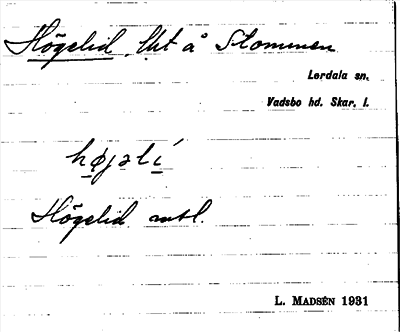 Högelid, lht å Stommen
Lerdala sn.
Vadsbo hd. Skar. l.
højəlí
Högelid mtl.
L. Madsén 1931